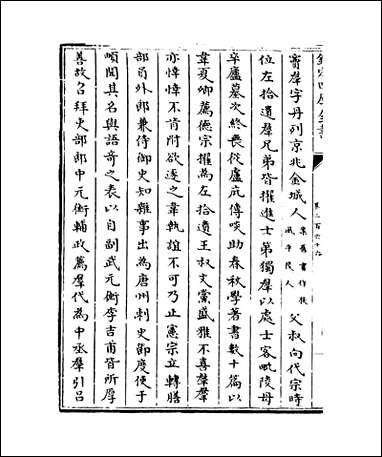 欽定四庫全書
卷二百六十九
竇羣字丹列京兆金城人案舊書作扶風平陵人父叔向代宗時
位左拾遺羣兄弟皆擢進士第獨羣以處士客毗陵母
卒廬墓次終喪從盧庇傳啖助春秋學著書數十篇以
韋夏卿薦德宗擢為左拾遺王叔文黨盛雅不喜羣羣
亦悻悻不肯附欲逐之韋執誼不可乃止憲宗立轉膳
部員外郎兼侍御史知雜事出為唐州刺史節度使于
頔聞其名與語奇之表以自副武元衡李吉甫皆所厚
善故召拜吏部郎中元衡輔政薦羣代為中丞羣引呂